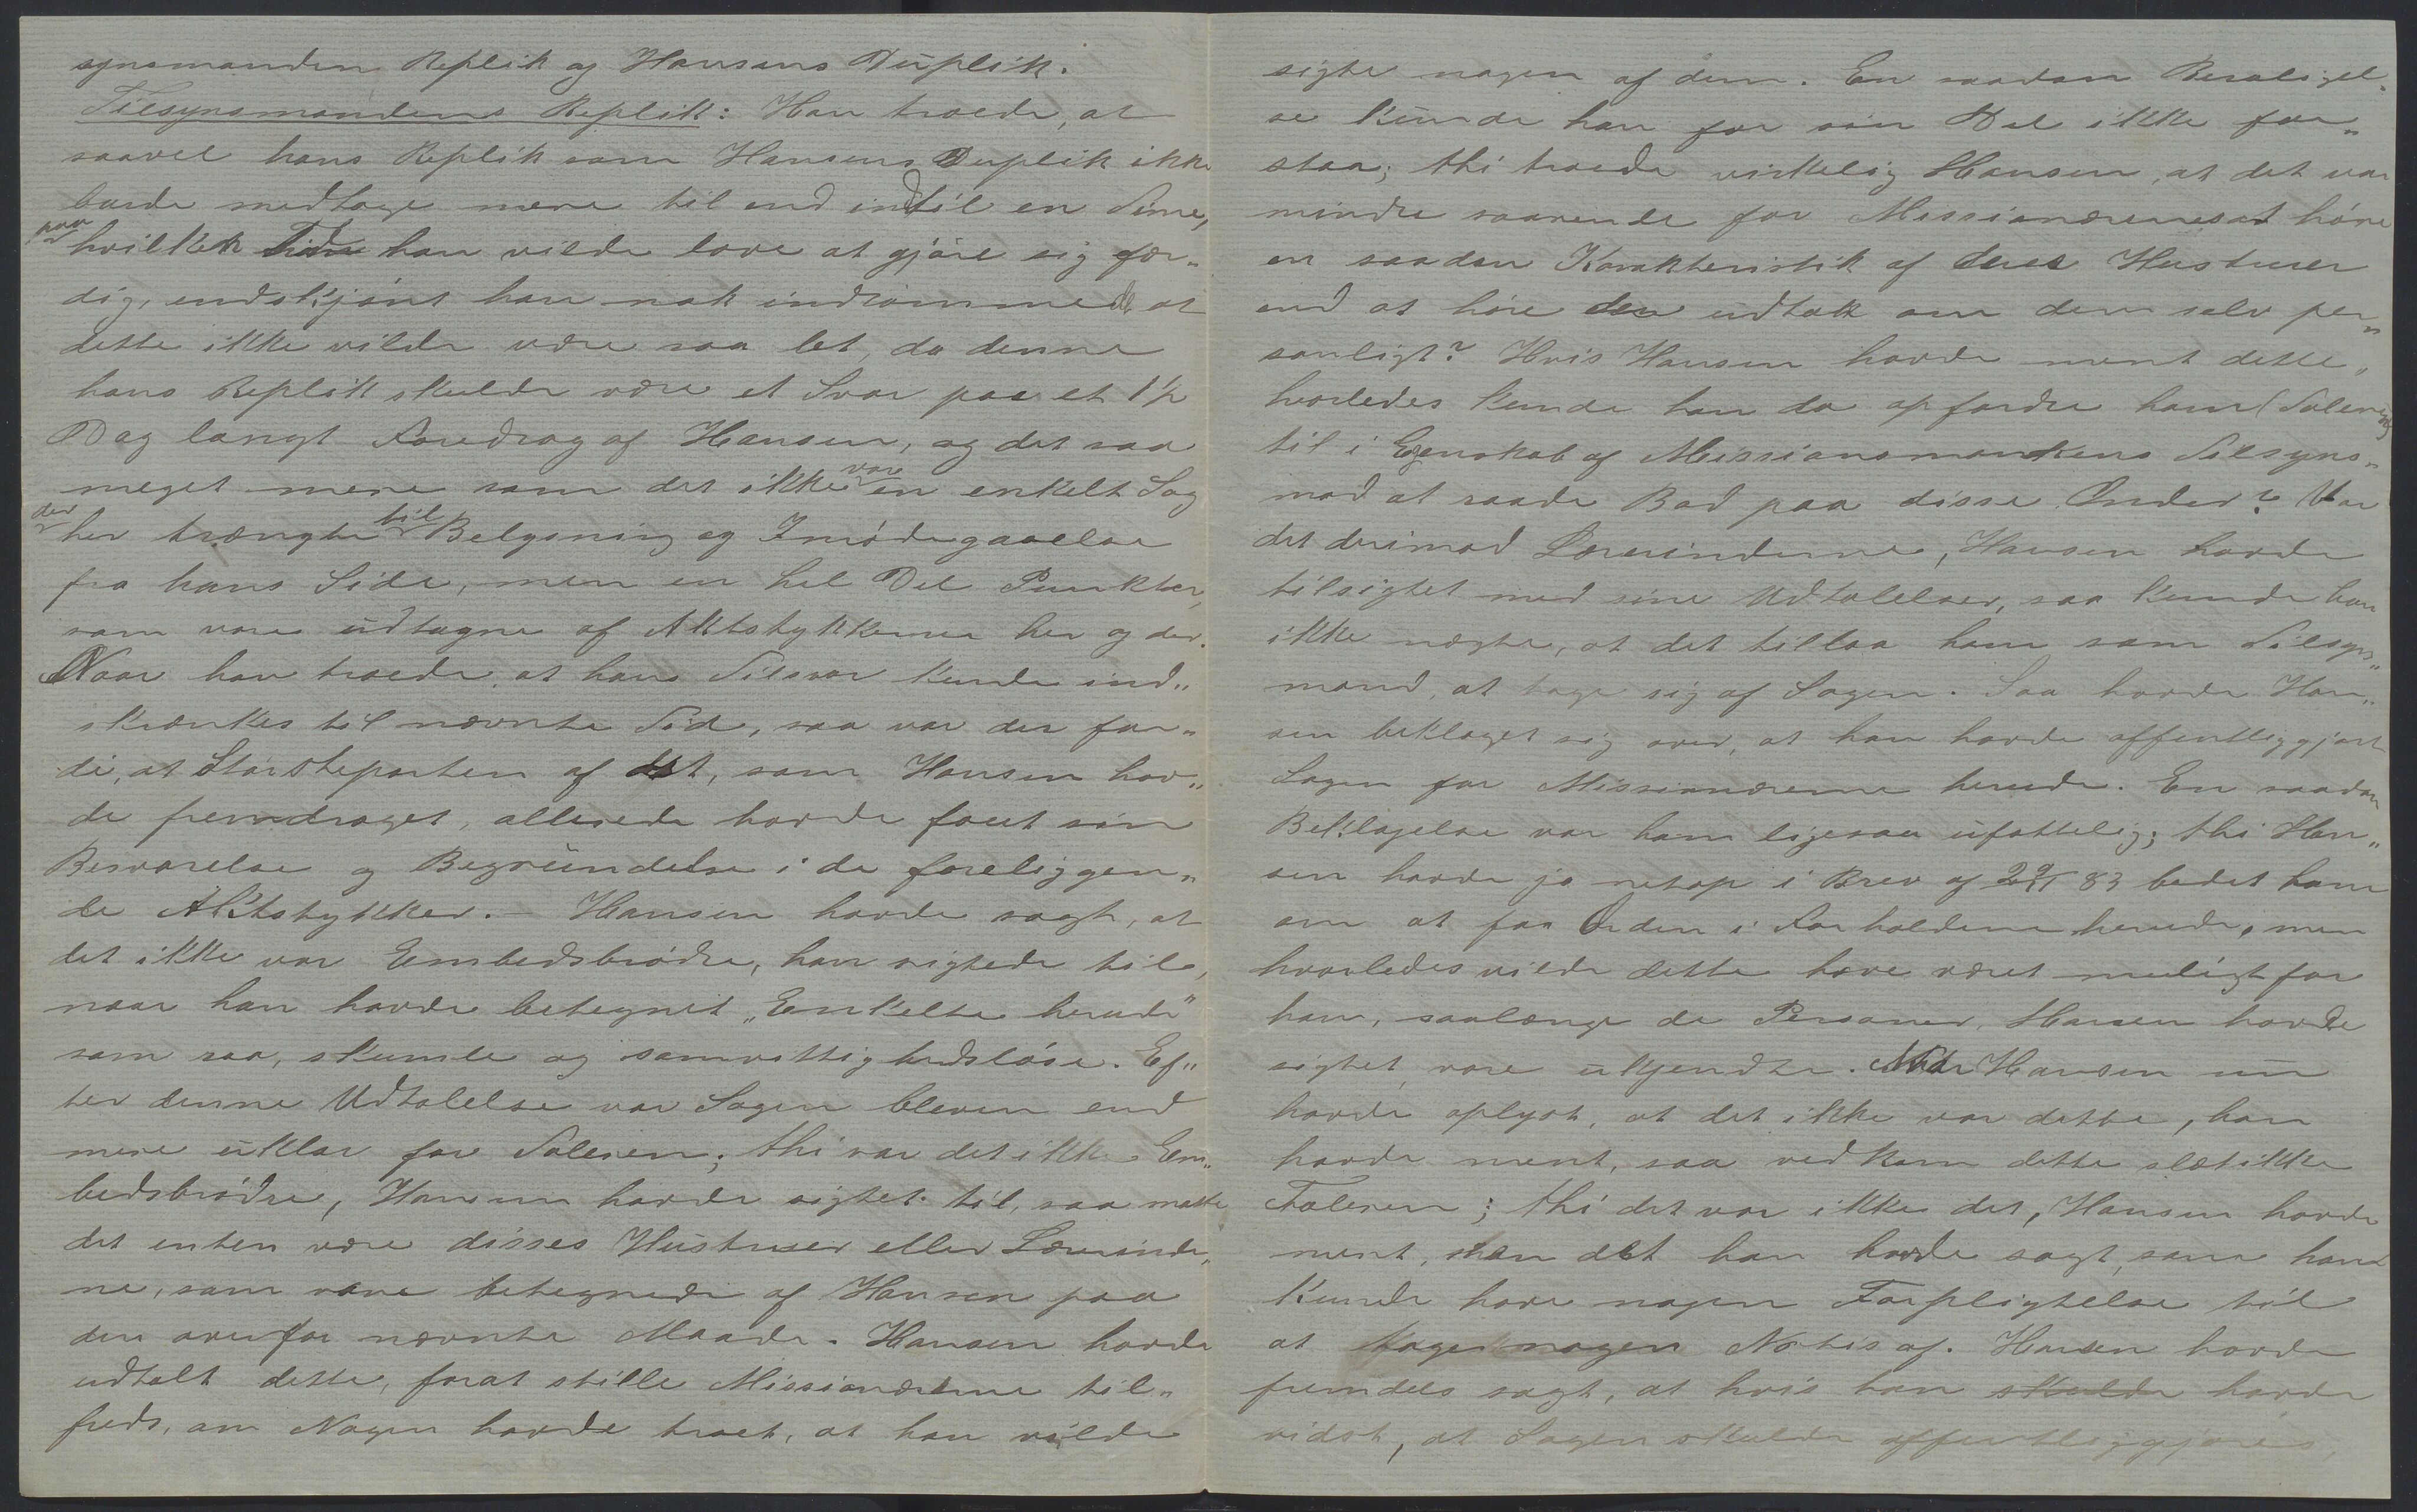 synsmanden Replik og Hansens Duplik.
Tilsynsmandens Replik: Han troede, at
saavel hans Replik som Hansens Duplik ikke
burde medtage mere til end indtil en Time,
paa hvilken Tid han vilde love at gjøre sig fær„
dig, endskjønt han nok indrømmede, at
dette ikke vilde være saa let, da denne
hans Replik skulde være et Svar paa et 1½
Dag langt Foredrag af Hansen, og det saa
meget mere som det ikke var en enkelt Sag
der her trængte til Belysning og Imødegaaelse
fra hans Side, men en hel Del Punkter,
som vare udtagne af Aktstykkerne her og der.
Naar han troede, at hans Tilsvar kunde ind„
skrænkes til nævnte Tid, saa var der for„
di, at Størsteparten af det, som Hansen hav„
de fremdraget, allerede havde faaet sin
Besvarelse og Begrundelse i de foreliggen„
de Aktstykker. – Hansen havde sagt, at
det ikke var Embedsbrødre, han sigtede til,
naar han havde betegnet „Enkelte herude"
som raa, skumle og samvittighedsløse. Ef„
ter denne Udtalelse var Sagen bleven end
mere uklar for Taleren; thi var det ikke Em„
bedsbrødre, Hansen havde sigtet til, saa maatte
det enten være disses Hustruer eller Lærerinder„
ne, som vare betegnede af Hansen paa
den ovenfor nævnte Maade. Hansen havde
udtalt dette, forat stille Missionærerne til„
freds, om Nogen havde troet, at han vilde
sigte nogen af dem. En saadan Beroligel„
se kunde han for sin Del ikke for„
staa; thi troede virkelig Hansen, at det var
mindre saarende for Missionærerne at høre
en saadan Karakteristik af deres Hustruer
end at høre den udtalt om dem selv per„
sonligt? Hvis Hansen havde ment dette,
hvorledes kunde han da opfordre ham (Taleren)
til i Egenskab af Missionsmarkens Tilsyns„
mand at raade Bod paa disse Onder? Var
det derimod Lærerinderne, Hansen havde
tilsigtet med sine Udtalelser, saa kunde han
ikke nægte, at det tillaa ham som Tilsyns„
mand, at tage sig af Sagen. Saa havde Han„
sen beklaget sig over, at han havde offentliggjort
Sagen for Missionærerne herude. En saadan
Beklagelse var ham ligesaa ufattelig; thi Han„
sen havde jo netop i Brev af 83 bedet ham
om at faa Orden i Forholdene herude, men
hvorledes vilde dette have været muligt for
ham, saalænge de Personer, Hansen havde
sigtet, vare ukjendte. Hansen nu
havde oplyst, at det ikke var dette, han
havde ment, saa vedkom dette slet ikke
Taleren; thi det var ikke det, Hansen havde
ment, men det han havde sagt, som han
kunde have nogen Forpligtelse til
at tage nogen Notis af. Hansen havde
fremdeles sagt, at hvis han skulde havde
vidst, at Sagen skulde offentliggjøres,